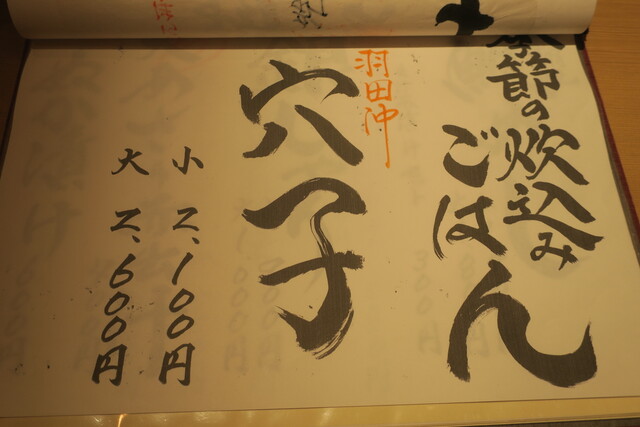 季節の炊込み
ごはん
羽田沖
穴子
小 2,100円
大 2,600円